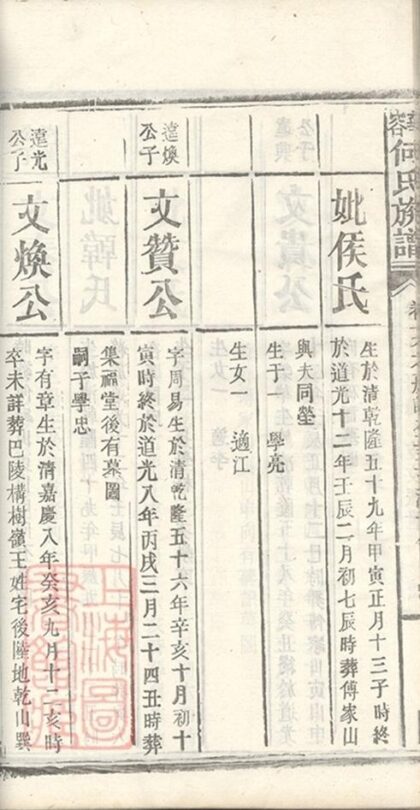 何氏族譜
妣侯氏
生於清乾隆五十九年甲寅正月十三子時終
於道光十二年壬辰二月初七辰時葬傅家山
與夫同塋
生子一 學亮
生女一 適江
遠煥
公子
文贊公
字周易生於清乾隆五十六年辛亥十月初十
寅時終於道光八年丙戌三月二十四丑時葬
集福堂後有墓圖
嗣子學忠
遠光
公子
文煥公
字有章生於清嘉慶八年癸亥九月十二亥時
卒未詳葬巴陵構樹嶺王姓宅後陸地乾山巽